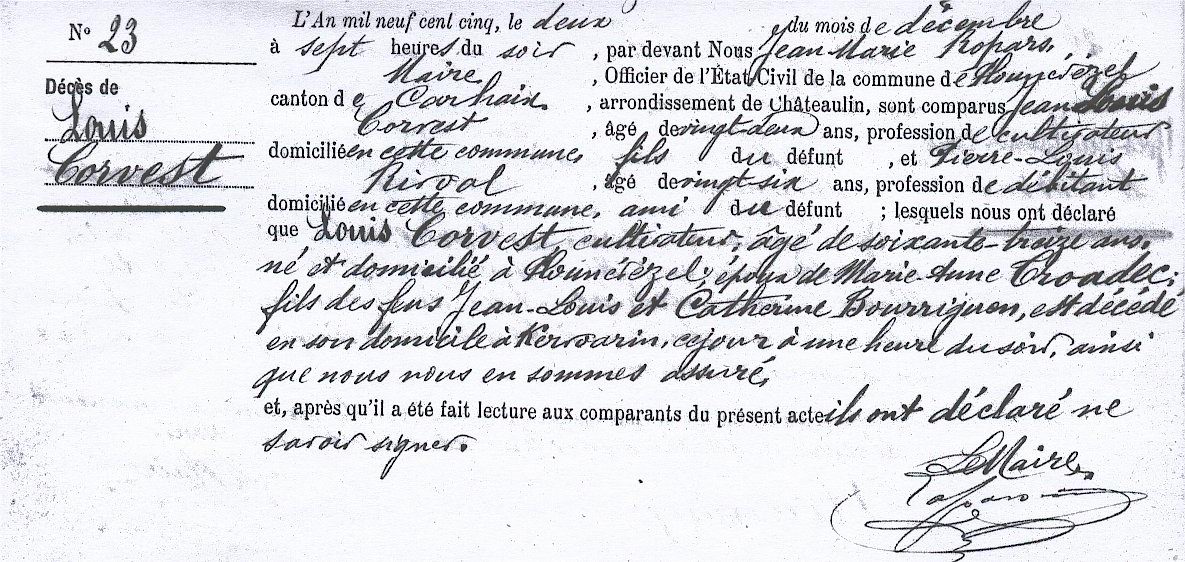 N° 23
Décès de
Louis
Corvest
L'An mil neuf cent cinq, le deux du mois de décembre
à sept heures du soir, par devant Nous Jean Marie Ropars,
Maire, Officier de l'État Civil de la commune de Plounévézel
canton de Carhaix, arrondissement de Châteaulin, sont comparus Jean Louis
Corvest, âgé de vingt-deux ans, profession de cultivateur
domicilié en cette commune, fils du défunt, et Pierre-Louis
Rivoal, âgé de vingt-six ans, profession de débitant
domicilié en cette commune, ami du défunt ; lesquels nous ont déclaré
que Louis Corvest, cultivateur, âgé de soixante-treize ans,
né et domicilié à Plounévézel, époux de Marie Anne Croadec,
fils des feus Jean-Louis et Catherine Bourriguen, est décédé
en son domicile à Kervarin, ce jour à une heure du soir, ainsi
que nous nous en sommes assuré,
et, après qu'il a été fait lecture aux comparants du présent acte ils ont déclaré ne
savoir signer.
Le Maire,
Ropars